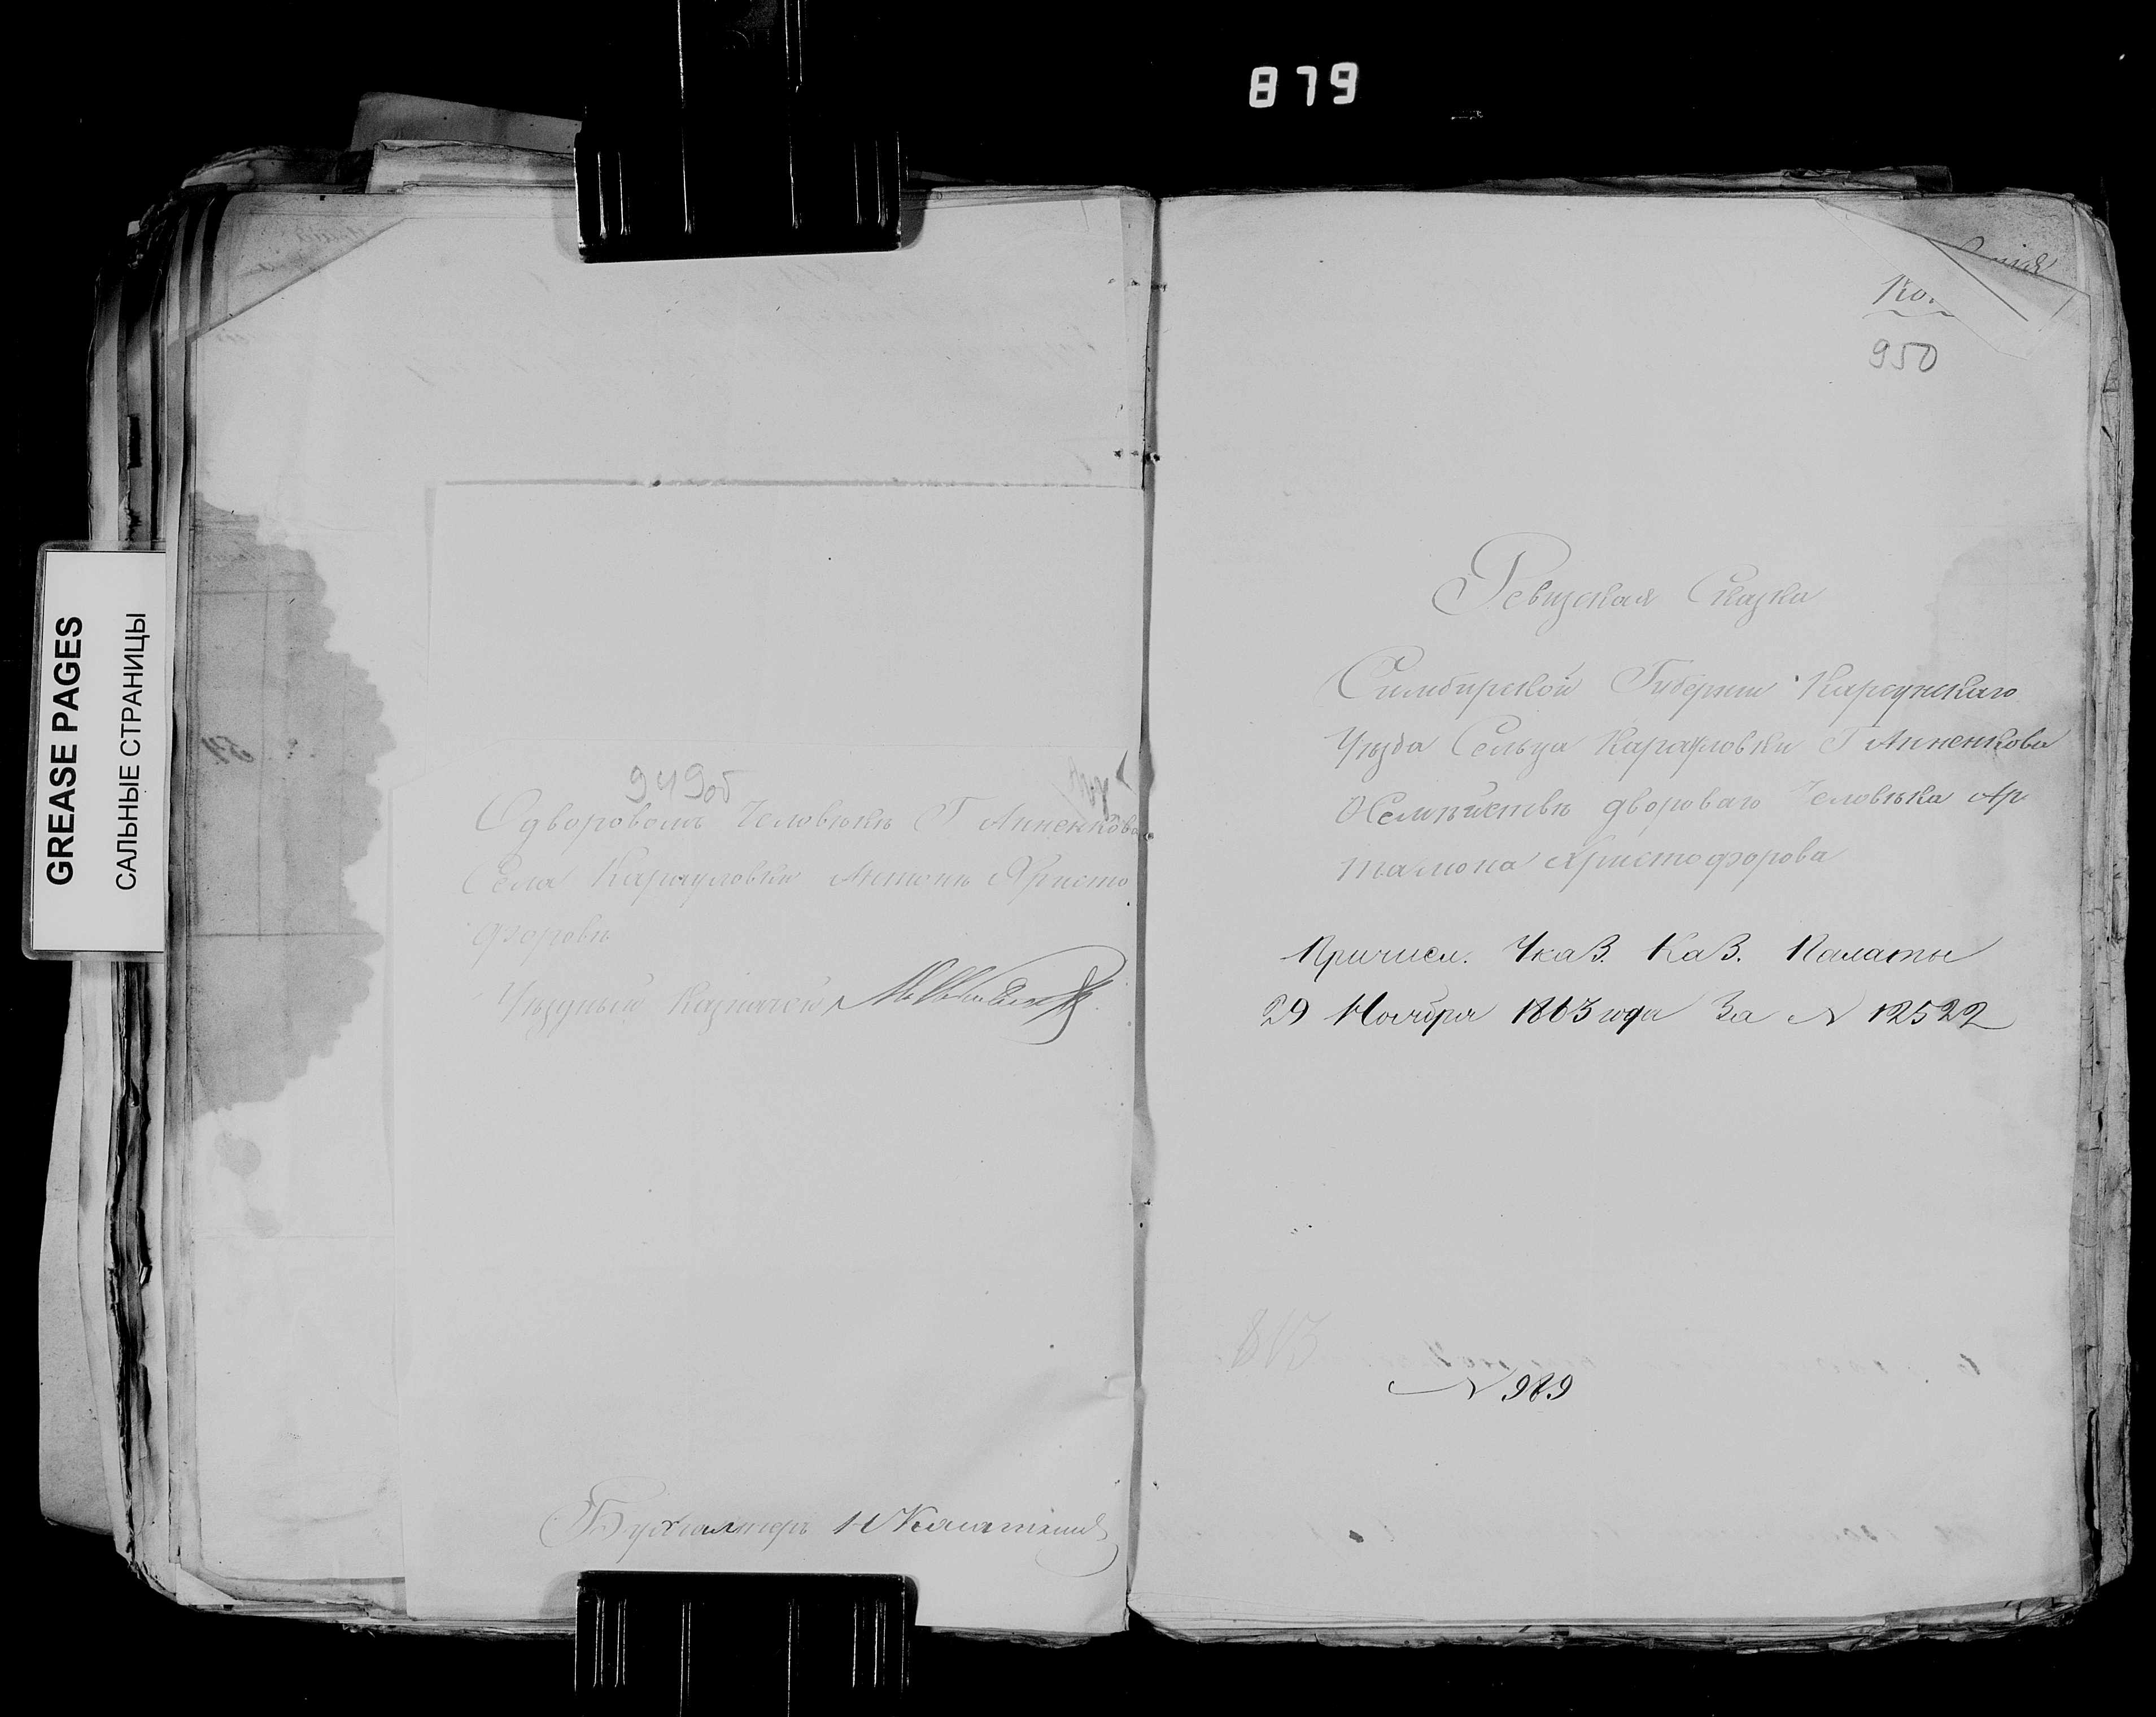 879
GREASE PAGES
САЛЬНЫЕ СТРАНИЦЫ
949об
О дворовомъ Человѣкѣ Г Анненкова
Села Карауловки Антонѣ Христо
форовѣ
Уѣздный Казначей
Бухгалтеръ
Ко.
950
Ревизская Сказка
Симбирской Губернии Карсунскаго
Уѣзда Сельца Карауловки Г Анненкова
О Семѣйствѣ двороваго Человѣка Ар
тамона Христофорова
Причисл. Указ. Каз. Палаты
29 Ноября 1863 года За N 12522
N 989